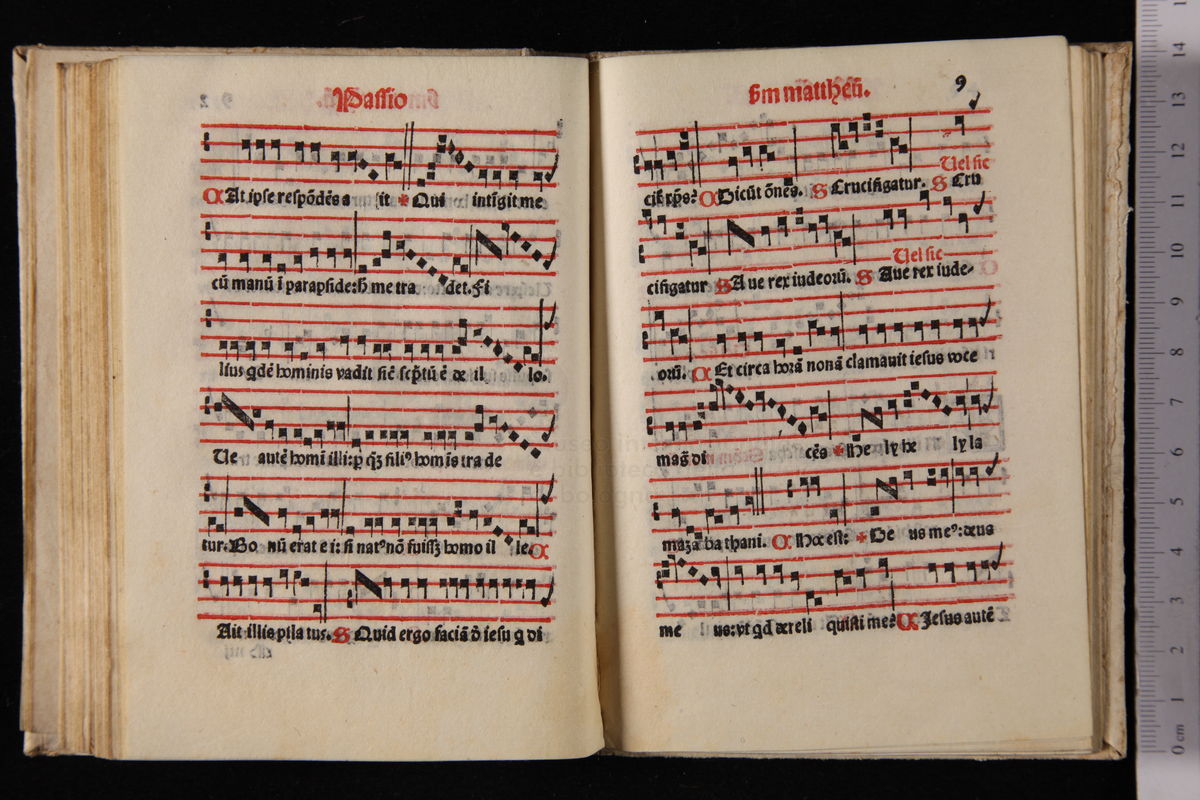 Passio
C At ipse respōdēs a it ✠ Qui intīgit me
cū manū ī parapside: ħ me tra det. Fi
lius qdē hominis vadit sic̄ scp̄tū ē de il lo.
Ue autē homī illi: ꝑ quē filiꝰ homīs tra de
tur. Bo nū erat e i: si natꝰ nō fuiss; homo il le. C
Ait illis pila tus. S Quid ergo faciā d̄ iesu q di
sm mattheū.
9
Uel sic
cit᷒ xp̄s? C Dicūt ōnes. S Crucifigatur. S Cru
Uel sic
cifigatur S A ue rex iudeoꝝū. S Aue rex iude-
orū. C Et circa horā nonā clamauit iesus voce
maḡ di cēs ✠ He ly he ly la
maza ba thani. C Hoc est: ✠ De us meꝰ: deus
me us: vt qd dereli quisti me? C Iesus autē
14
13
12
11
10
9
8
7
6
5
4
3
2
1
0 cm